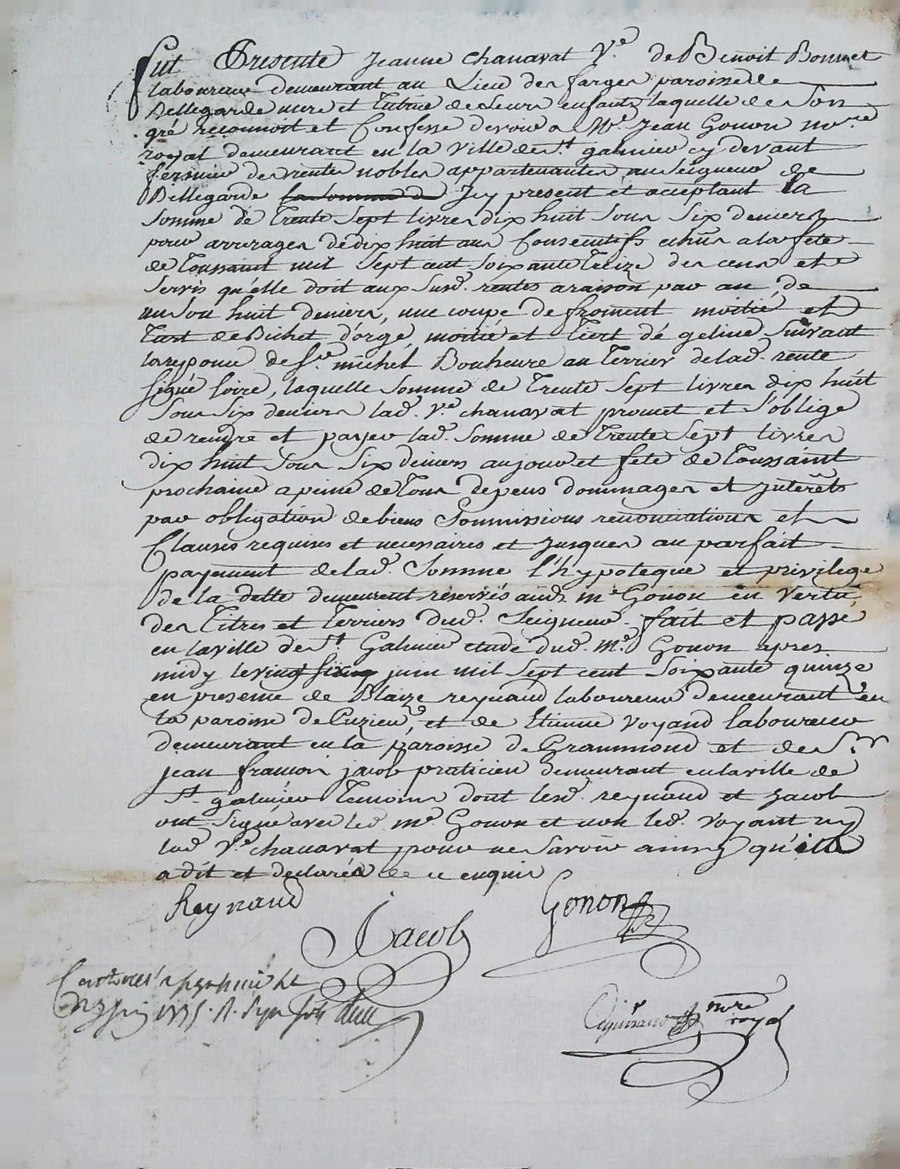 fut Presente Jeanne chanavat V.e de Benoit Bonnet
laboureur demeurant au Lieu des farges paroisse de
Bellegarde mere et Tutrice de Leurs enfants laquelle de son
gré reconnoit et Confesse devoir a M.e Jean Gonon no.re
royal demeurant en la ville de S.t galmier cy devant
fermier des rentes nobles appartenantes au Seigneur de
Bellegarde la somme d Icy present et acceptant la
somme de Trente Sept livres dix huit Sous Six deniers
pour arrerages de dix huit ans Consecutifs echus a la fete
de Toussaint mil Sept cent Soixante Treize des cens et
Servis qu'elle doit aux Susd. rentes a raison par an, de
un Sou huit deniers, une coupe de froment moitié et
Tiert de Bichet d'orge, moitié et Tiert de geline Suivant
la reponce de S.r michel Bonheure au Terrier de lad. rente
Signé loire, laquelle Somme de Trente Sept livres dix huit
Sous Six deniers lad. V.e chanavat promet et S'oblige
de rendre et payer lad. Somme de Trente Sept livres
dix huit Sous Six deniers au jour et fete de Toussaint
prochaine a peine de Tous depens dommages et Interêts
par obligation de biens Sommissions renonciations et
Clauses requises et necessaires et Jusques au parfait
payement de lad. Somme l'hypoteque et privilege
de la dette demeurent réservés aud. m.e Gonon en vertu
des Titres et Terriers dud. Seigneur. fait et passé
en la ville de S.t Galmier etude dud. m.e Gonon apres
midy le juin mil Sept cent Soixante quinze
en presence de Blaize reynaud laboureur demeurant en
la paroisse de Cuzieu, et de Etienne Voyand laboureur
demeurant en la paroisse de Grammond et de S.r
jean francois jacob praticien demeurant en la ville de
S.t galmier Temoins dont lesd. reynaud et Jacob
ont Signé avec led. m.e Gonon et non led. Voyant ny
lad. V.e chanavat pour ne Savoir ainsy qu'elle
a dit et declaré de ce enquis
Reynaud
Jacob
Gonon
juin 1775
no.re royal